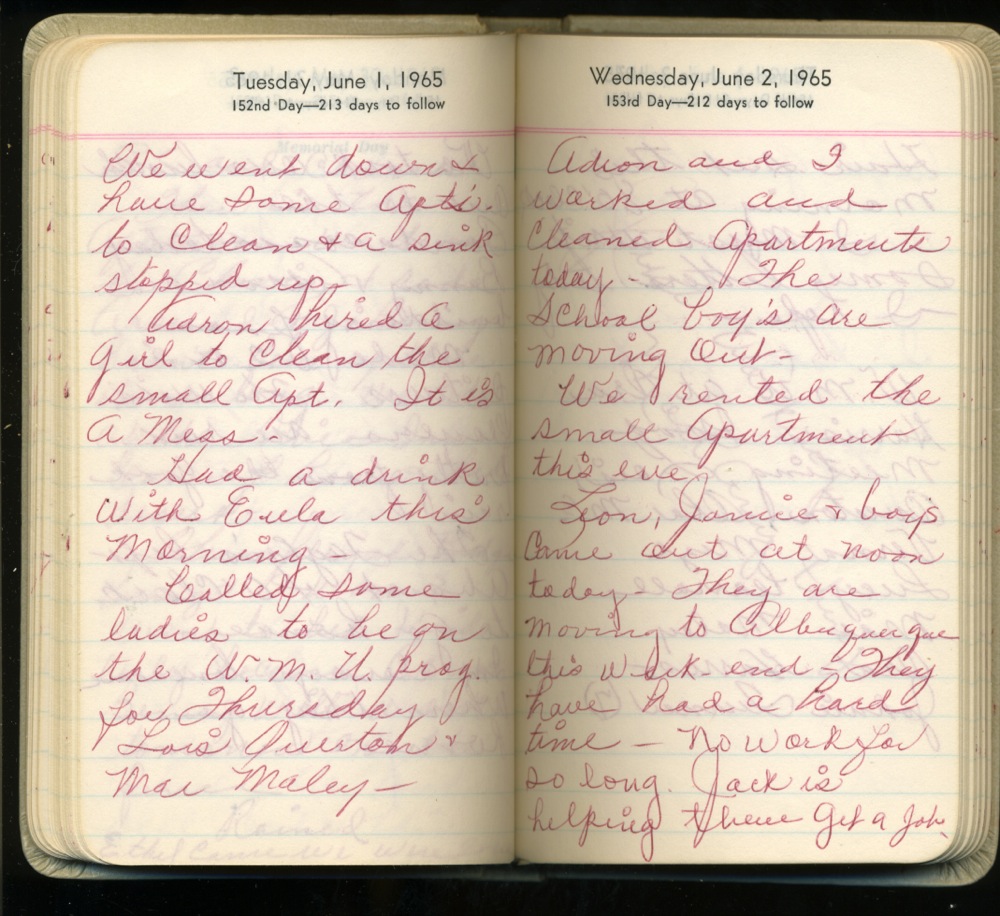 Tuesday, June 1, 1965
152nd Day—213 days to follow
We went down &
have some Apts.
to Clean & a sink
stopped up,
Adron hired a
girl to clean the
small Apt. It is
A Mess -
Had a drink
With Eula this
Morning -
Called some
ladies to be on
the W.M.U. prog.
for Thursday
Lois Overton &
Mae Maley -
Wednesday, June 2, 1965
153rd Day—212 days to follow
Adron and I
worked and
Cleaned Apartments
today - The
School boy's are
moving Out -
We rented the
small Apartment
this eve
Leon, Janie & boys
Came out at noon
today - They are
moving to Albuquerque
this week-end - They
have had a hard
time - No work for
so long. Jack is
helping them Get a Job.